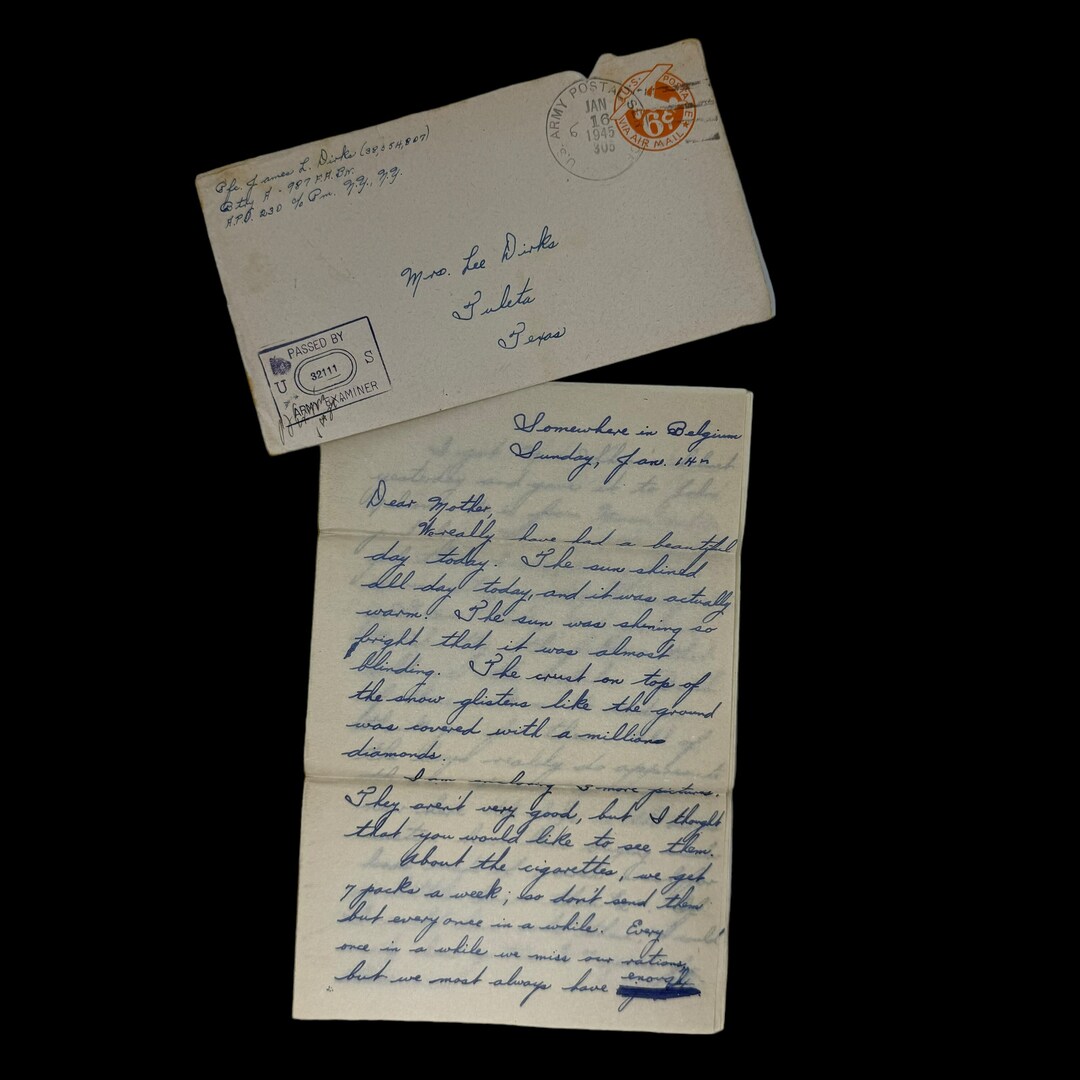 Pfc. James L. Dirks (38,654,807)
Btry A - 987 F.A. Bn.
A.P.O. 230 c/o Pm. N.Y., N.Y.
U.S. ARMY POSTAL
JAN
16
1945
U.S. POSTAGE
6¢
VIA AIR MAIL
Mrs. Lee Dirks
Tuleta
Texas
PASSED BY
U 32111 S
ARMY EXAMINER
Somewhere in Belgium
Sunday, Jan. 14th
Dear Mother,
We really have had a beautiful
day today. The sun shined
all day today, and it was actually
warm. The sun was shining so
bright that it was almost
blinding. The crust on top of
the snow glistens like the ground
was covered with a million
diamonds.
I am enclosing 3 more pictures.
They aren't very good, but I thought
that you would like to see them.
About the cigarettes, we get
7 packs a week; so don't send them
but every once in a while. Every
once in a while we miss our rations,
but we most always have enough